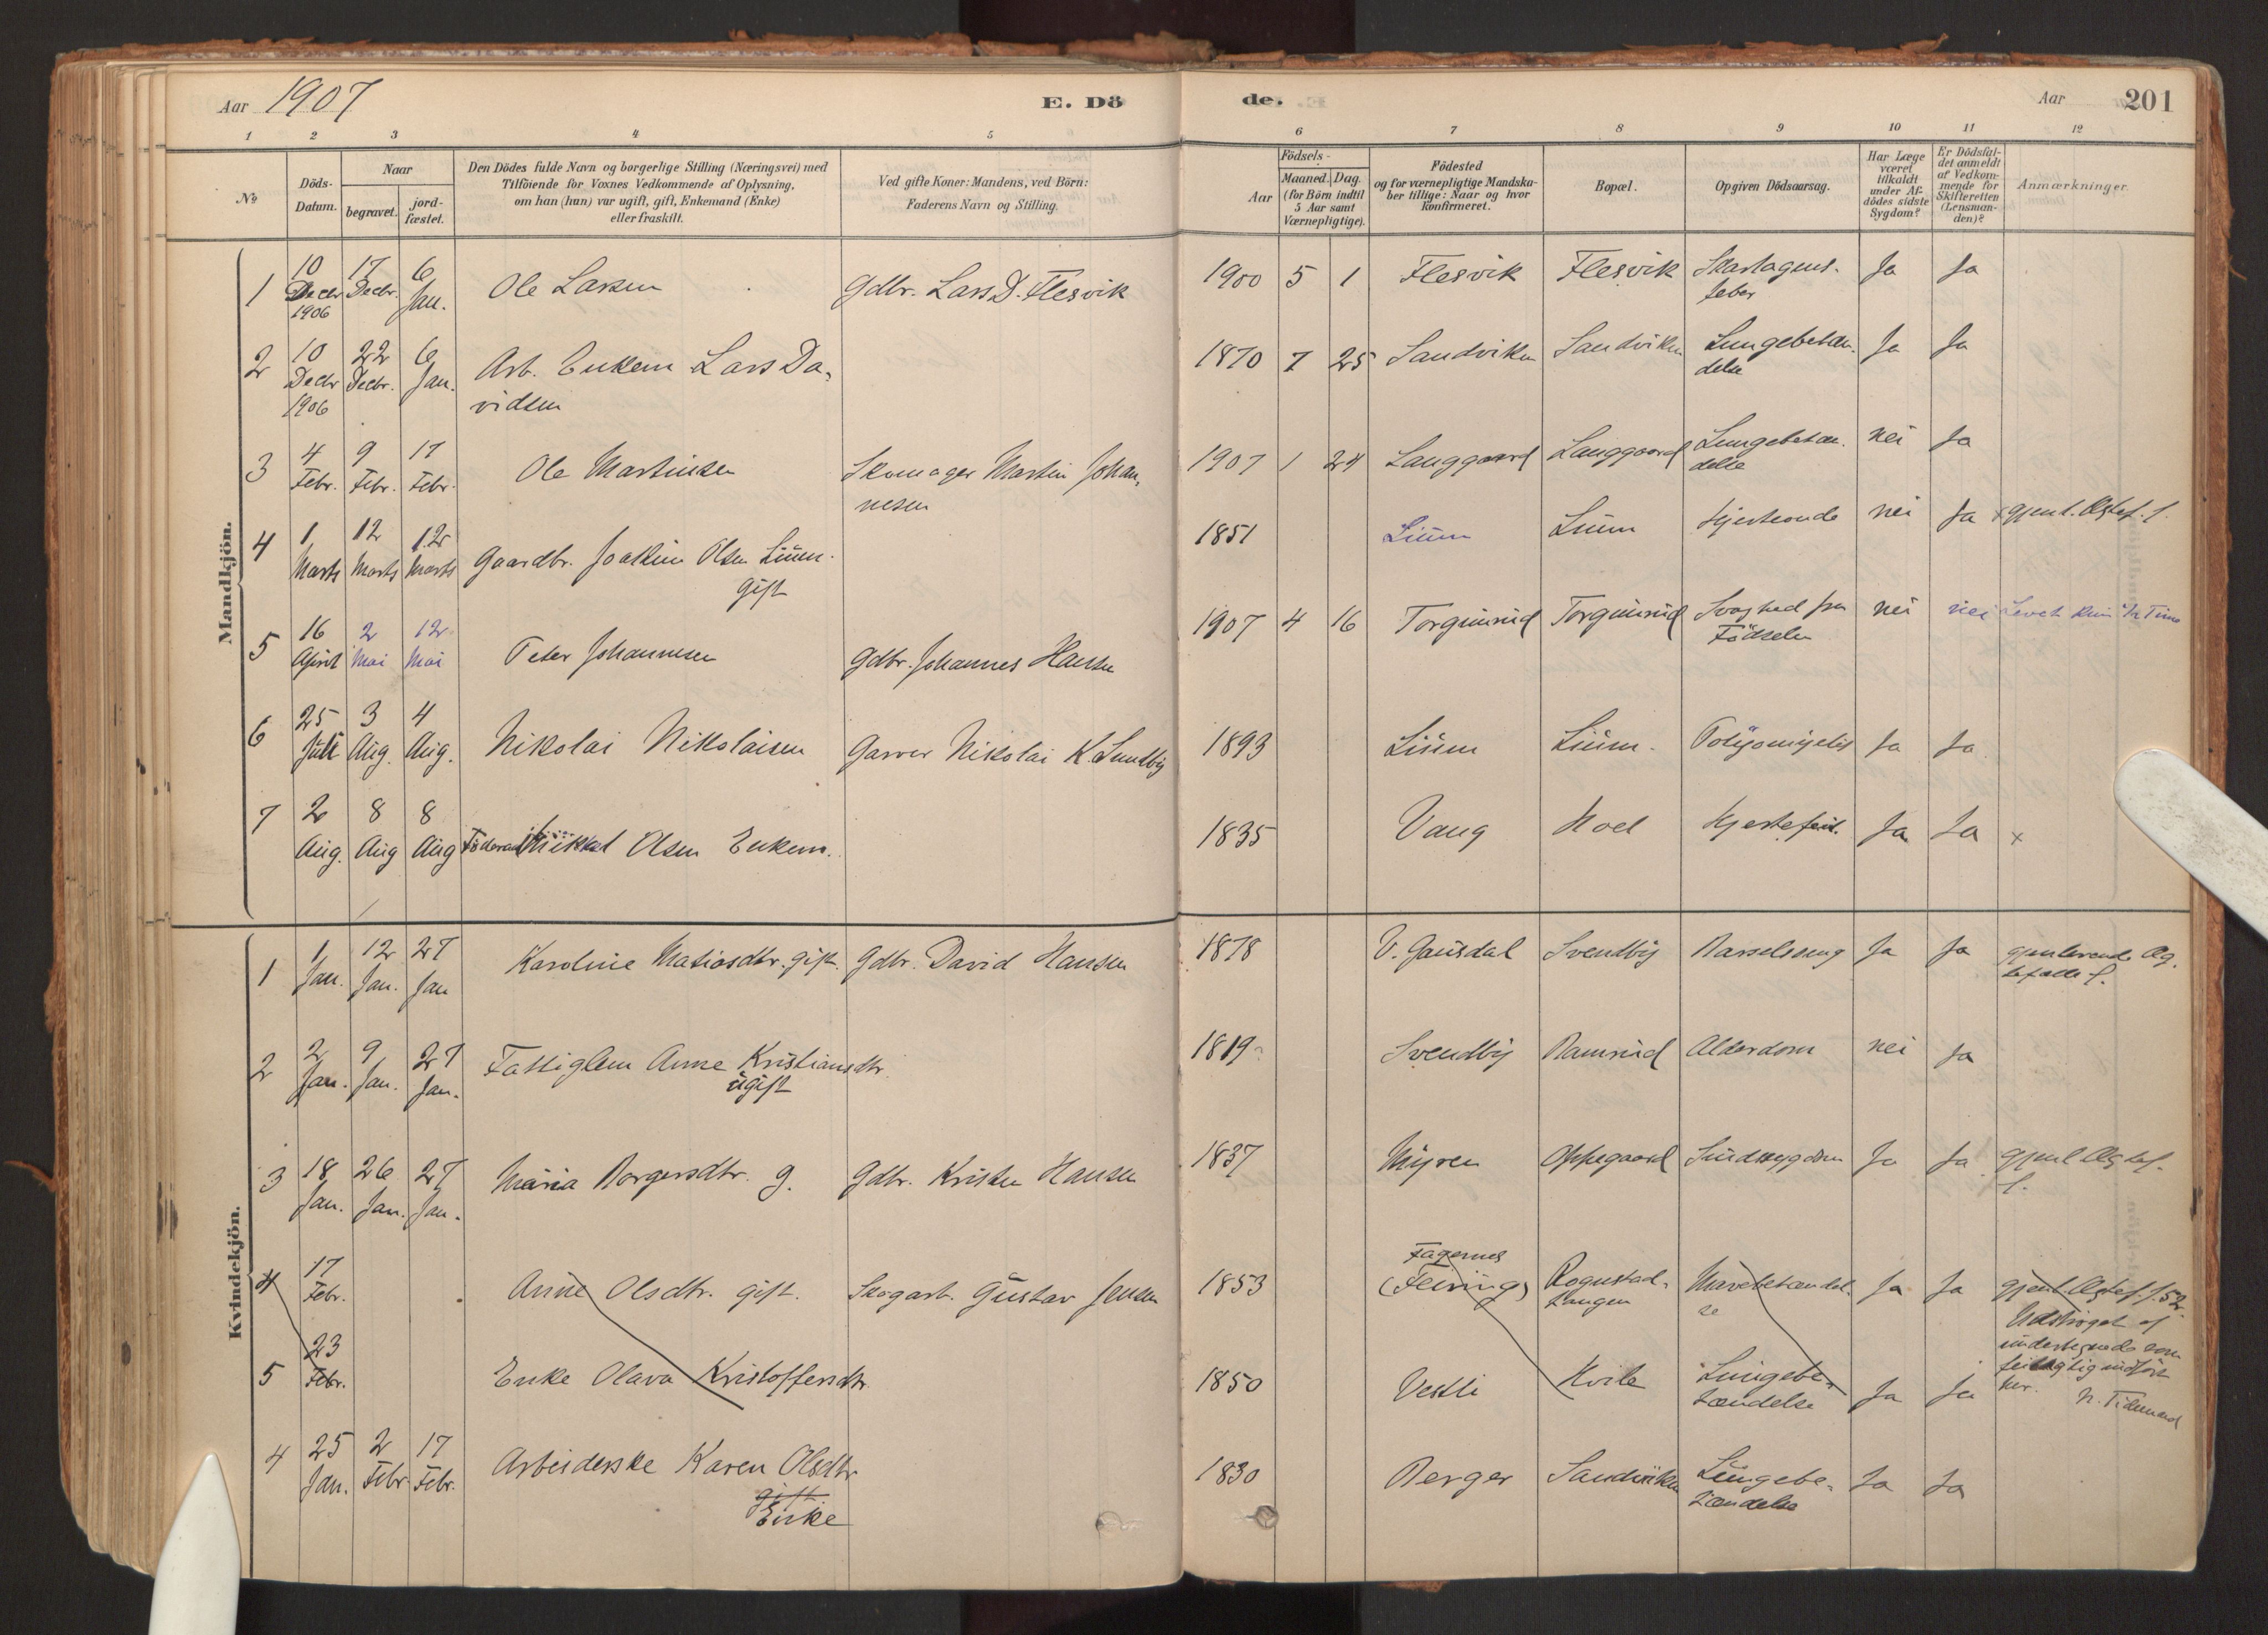 Aar 1907 E. Dö de. Aar 201
1 2 3 4 5 6 7 8 9 10 11 12
No
Döds-Datum.
Naar
begravet. jord-fæstet.
Den Dödes fulde Navn og borgerlige Stilling (Næringsvei) med
Tilföiende for Voxnes Vedkommende af Oplysning,
om han (hun) var ugift, gift, Enkemand (Enke)
eller fraskilt.
Ved gifte Koner: Mandens, ved Börn:
Faderens Navn og Stilling.
Födsels-
Aar Maaned. Dag.
(for Börn indtil
5 Aar samt
Værnepligtige).
Födested
og for værnepligtige Mandska-
ber tillige: Naar og hvor
konfirmeret.
Bopæl.
Opgiven Dödsaarsag.
Har Læge
været
tilkaldt
under Af-
dödes sidste
Sygdom?
Er Dödsfal-
det anmeldt
af Vedkom-
mende for
Skifteretten
(Lensman-
den)?
Anmærkninger.
Mandkjön.
1 10 Decbr 1906 17 Decbr. 6 Jan. Ole Larsen Gdbr. Lars D. Flesvik 1900 5 1 Flesvik Flesvik Skarlagens-
feber Ja Ja
2 10 Decbr 1906 22 Decbr. 6 Jan. Arb. Enkem. Lars Da-
vidsen 1870 7 25 Sandviken Sandviken Lungebetæn-
delse Ja Ja
3 4 Febr. 9 Febr. 17 Febr. Ole Martinsen Skomager Martin Johan-
nesen 1907 1 24 Langgaard Langgaard Lungebetæn-
delse nei Ja
4 1 Marts 12 Marts 12 Marts Gaardbr. Joakim Olsen Lium.
gift 1851 Lium Lium Hjerteonde nei Ja x gjenl. Ægtef. f.
5 16 April 2 Mai 12 Mai Peter Johannesen Gdbr. Johannes Hansen 1907 4 16 Torgunrud Torgunrud Svaghed fra
Födselen nei nei Levet kun ½ Time
6 25 Juli 3 Aug. 4 Aug. Nikolai Nikolaisen Garver Nikolai K. Sundby 1893 Lium Lium. Ja Ja
7 2 Aug. 8 Aug 8 Aug Mikkel Olsen Enkem. 1835 Vang Hoel Hjertefeil. Ja Ja x
Kvindekjön.
1 1 Jan. 12 Jan. 27 Jan Karoline Matiasdtr. gift. Gdbr. David Hansen 1878 V. Gausdal Svendby Barselseng Ja Ja gjenlevende Æg-
tefælle f.
2 2 Jan. 9 Jan. 27 Jan. Fattiglem Anne Kristiansdtr.
ugift 1819 Svendby Ramrud Alderdom nei Ja
3 18 Jan. 26 Jan. 27 Jan. Maria Borgersdtr. g. Gdbr. Kristen Hansen 1837 Myren Oppegaard Sindssygdom Ja Ja gjenl Ægtef.
f.
4 17 Febr. Anne Olsdtr. gift. Skogarb. Gustav Jensen 1853 Fagernes
(Feiring) Rognstad-
tangen Mavebetændel-
se Ja Ja gjenl Ægtef. f. 52
Udströget af
undertegnede som
feilagtig indfört
her.
N. Tidemand
5 23 Febr. Enke Olava Kristoffersdtr. 1850 Vestli Hvile Lungebe-
tændelse Ja Ja
4 25 Jan. 2 Febr. 17 Febr. Arbeiderske Karen Olsdtr
gift
Enke 1830 Berger Sandviken Lungebe-
tændelse Ja Ja